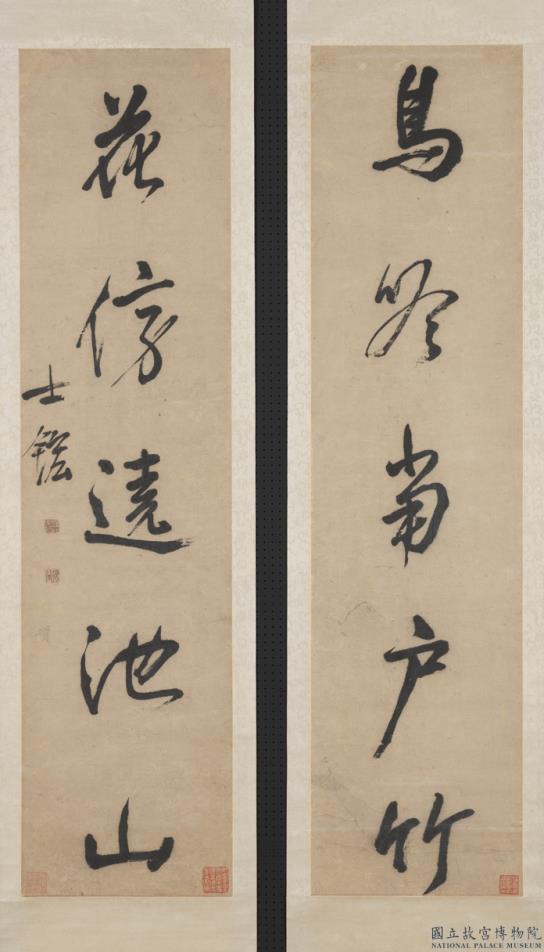 鳥吟當户竹
花傍遶池山
士鋐
國立故宮博物院
NATIONAL PALACE MUSEUM